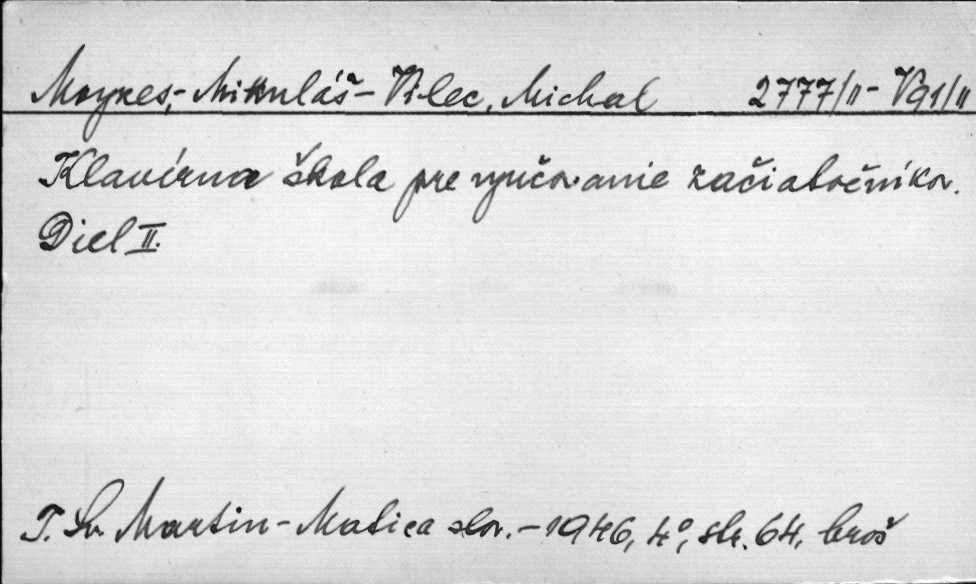 Moyzes, Mikuláš - Vilec, Michal 2777/II - Vq1/II
Klavírna škola pre vyučovanie začiatočníkov.
Diel II.
T. Sv. Martin - Matica slov. - 1946, 4°, str. 64, broš